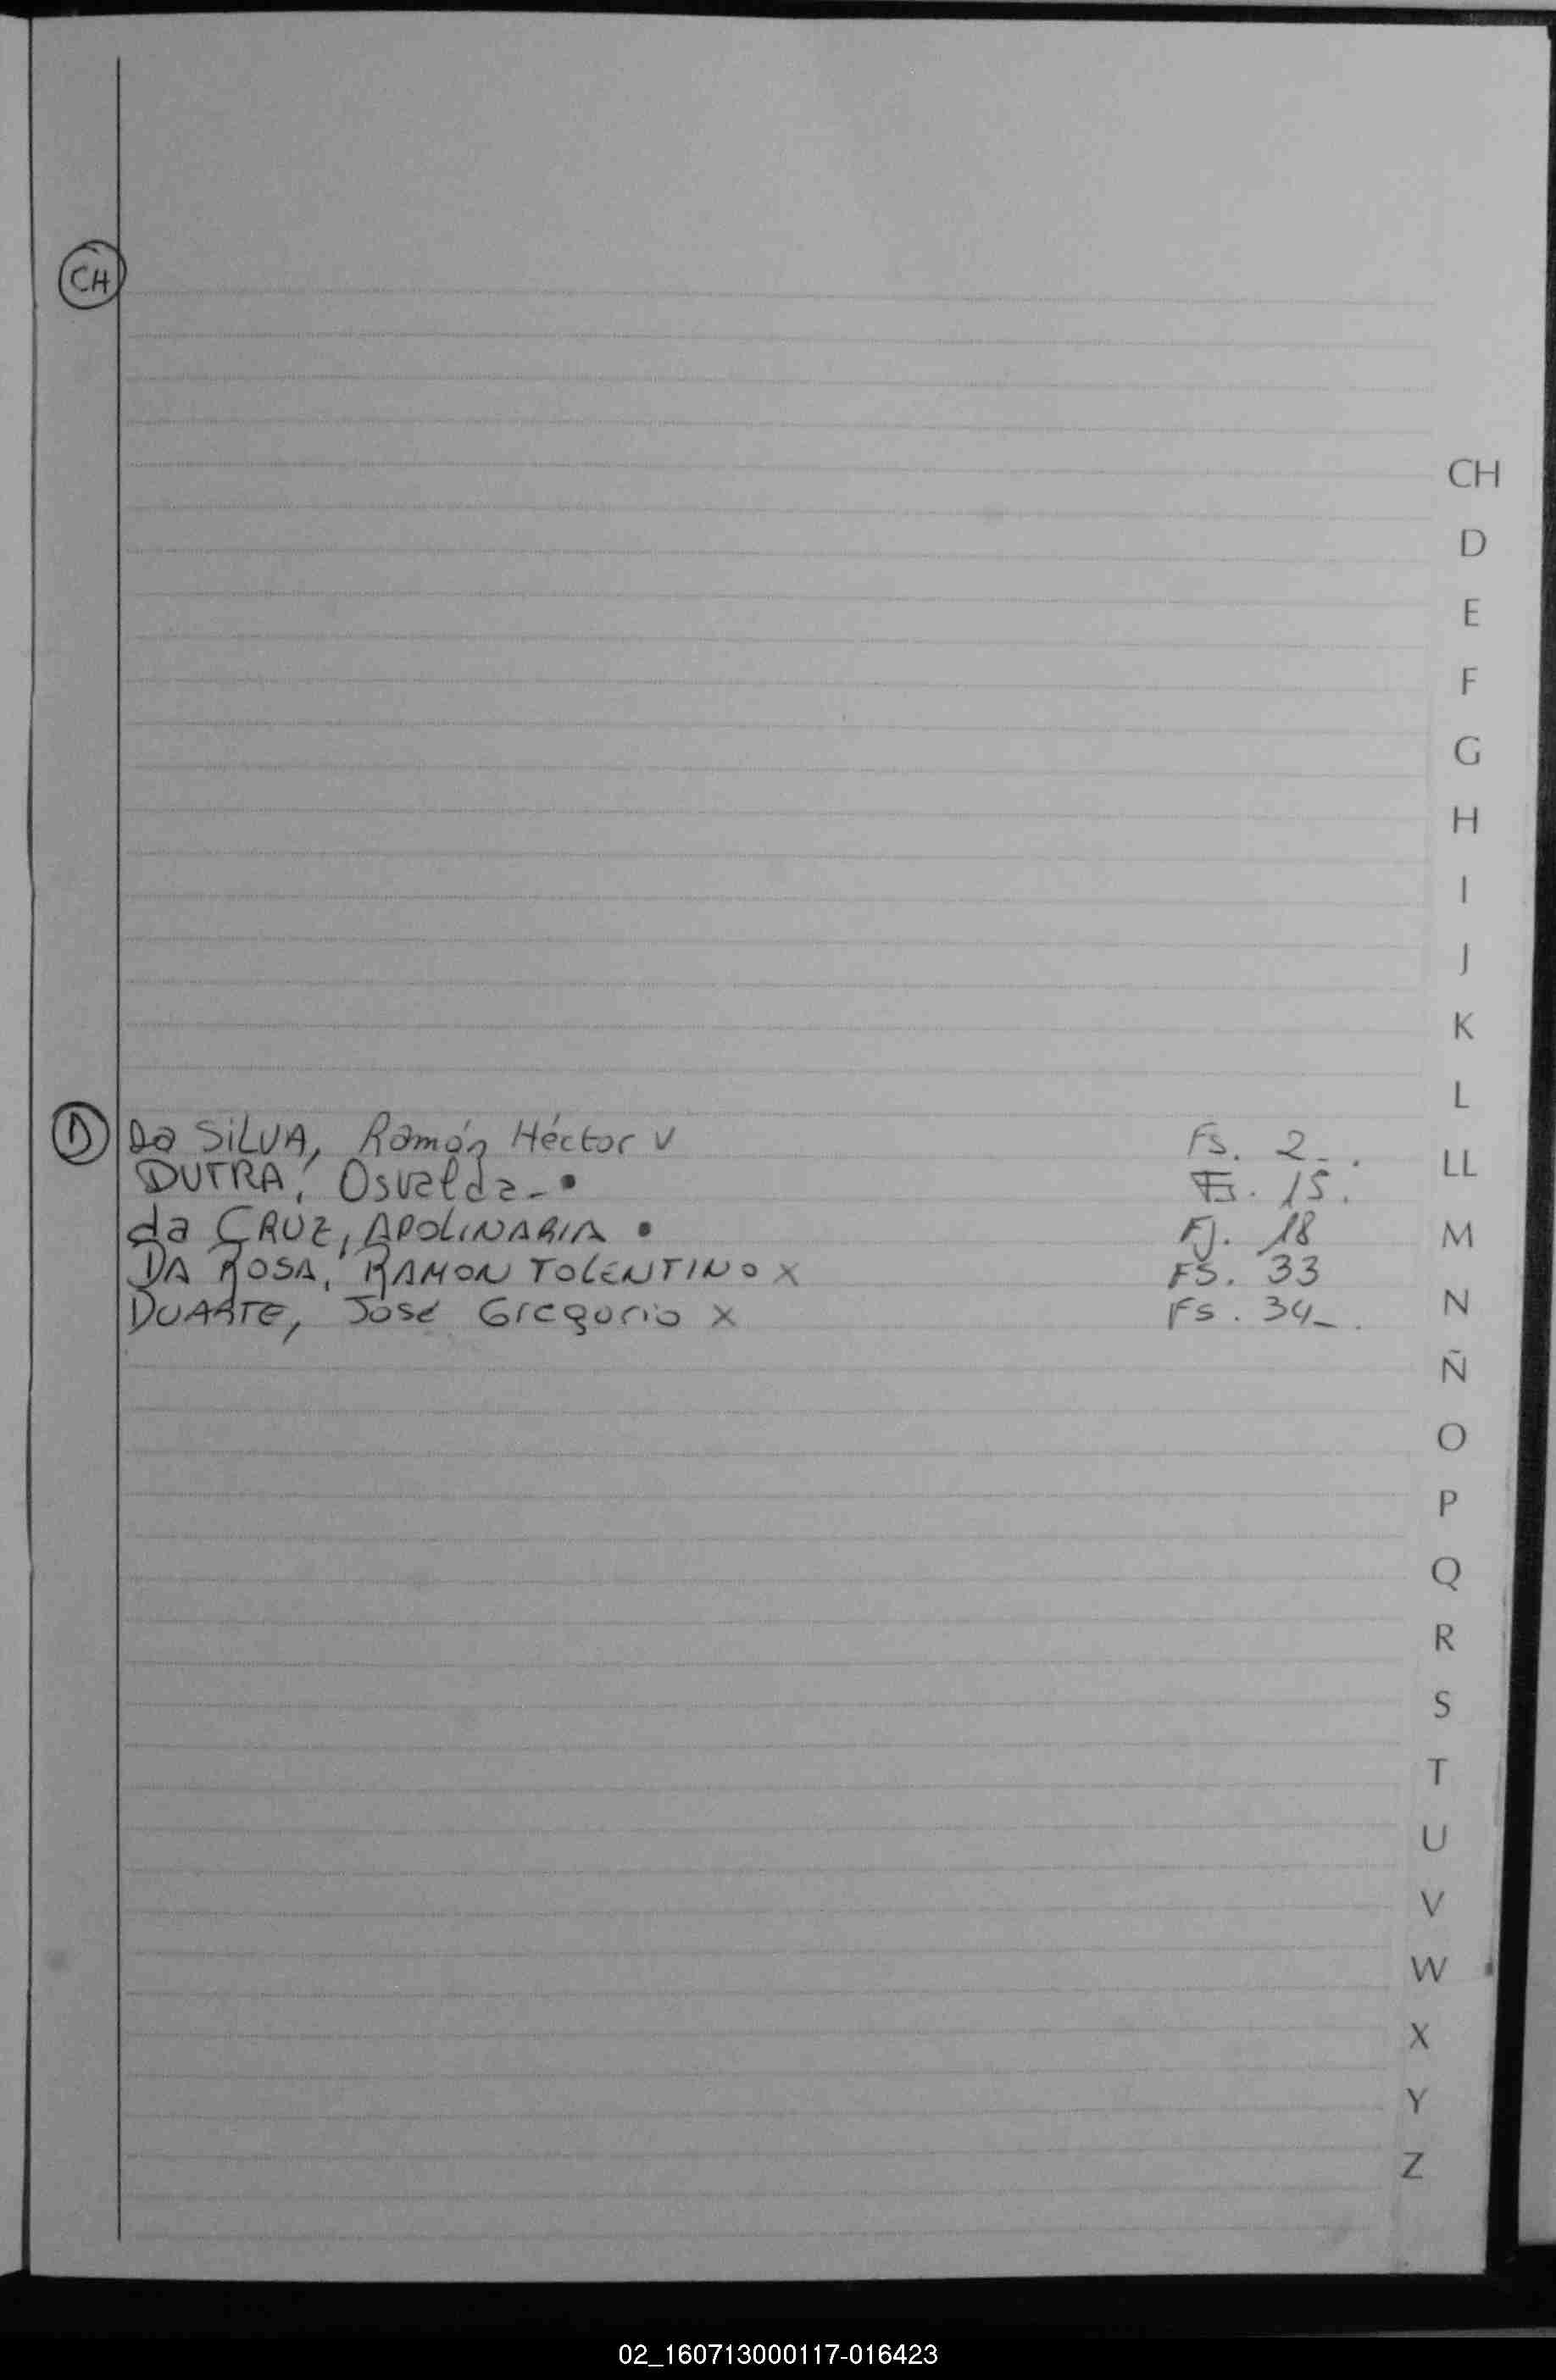 CH
CH
D
E
F
G
H
I
J
K
L
D Da SiLVA, Ramón Héctor v Fs. 2_.
LL
DUTRA, Osvalda_• Fs. 15.
da CRUZ, APOLINARIA • Fj. 18
M
DA ROSA, RAMON TOLENTINO x FS. 33
DUARTE, José Gregorio x Fs. 34_.
N
Ñ
O
P
Q
R
S
T
U
V
W
X
Y
Z
02_160713000117-016423